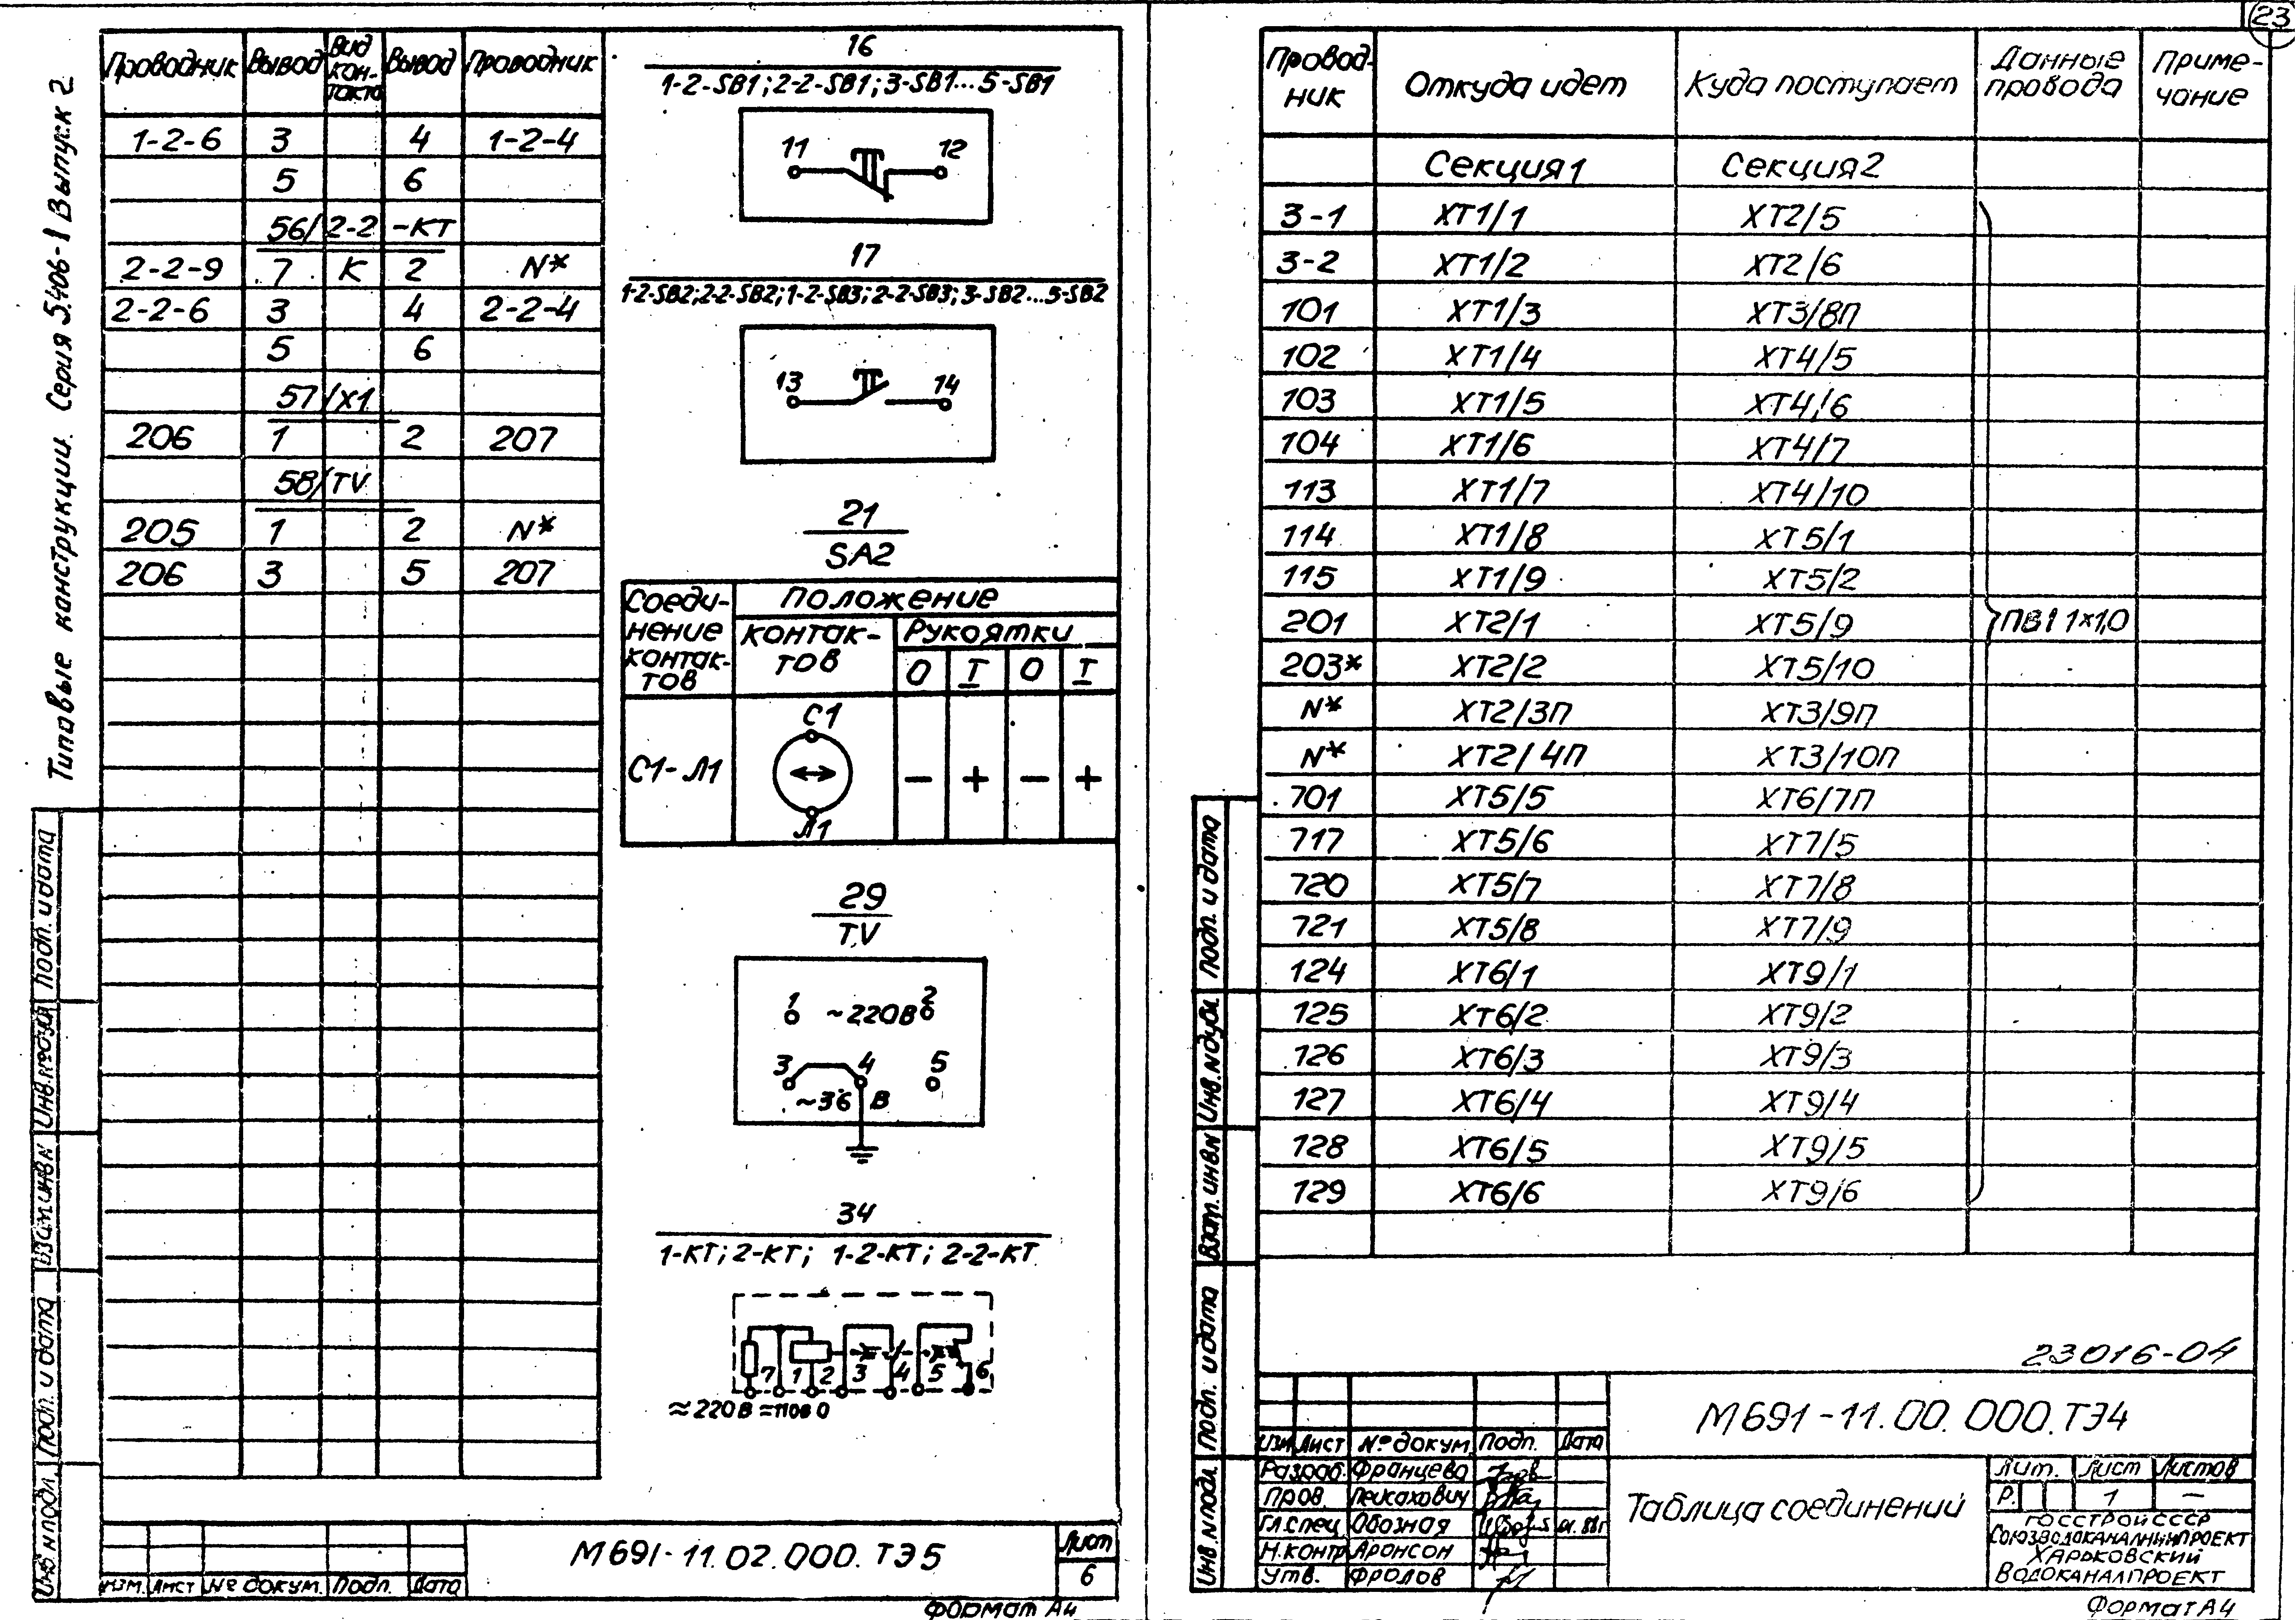 23
Типовые канструкции. Серия 5.406-1 Выпуск 2
Проводник Вывод Вид кон-такта Вывод Проводник
1-2-6 3 4 1-2-4
5 6
56/2-2-КТ
2-2-9 7 К 2 N*
2-2-6 3 4 2-2-4
5 6
57/X1
206 1 2 207
58/TV
205 1 2 N*
206 3 5 207
16
1-2-SB1; 2-2-SB1; 3-SB1...5-SB1
11 12
17
1-2-SB2; 2-2-SB2; 1-2-SB3; 2-2-SB3; 3-SB2...5-SB2
13 14
21
SA2
Соеди-нение контак-тов Положение
контак-тов Рукоятки
0 I 0 I
С1
С1-Л1 - + - +
Л1
29
TV
1 ~220В 2
3 4 5
~36 В
34
1-КТ; 2-КТ; 1-2-КТ; 2-2-КТ
7 1 2 3 4 5 6
≈220В =110В 0
Подп. и дата
Инв.№дубл
Взам.инв.N
Подп. и дата
Инв N подл.
М691-11.02.000.ТЭ5
Лист
6
Изм. Лист № докум. Подп. Дата
Формат А4
Провод-ник Откуда идет Куда поступает Данные провода Приме-чание
Секция1 Секция2
3-1 XT1/1 XT2/5
3-2 XT1/2 XT2/6
101 XT1/3 XT3/8П
102 XT1/4 XT4/5
103 XT1/5 XT4/6
104 XT1/6 XT4/7
113 XT1/7 XT4/10
114 XT1/8 XT5/1
115 XT1/9 XT5/2
201 XT2/1 XT5/9 ПВ1 1×1,0
203* XT2/2 XT5/10
N* XT2/3П XT3/9П
N* XT2/4П XT3/10П
701 XT5/5 XT6/7П
717 XT5/6 XT7/5
720 XT5/7 XT7/8
721 XT5/8 XT7/9
124 XT6/1 XT9/1
125 XT6/2 XT9/2
126 XT6/3 XT9/3
127 XT6/4 XT9/4
128 XT6/5 XT9/5
129 XT6/6 XT9/6
Подп. и дата
Инв.Nдубл.
Взам.инвN
Подп. и дата
Инв.Nподл.
23016-04
М691-11.00.000.ТЭ4
Изм Лист №докум. Подп. Дата
Разраб. Францева
Пров. Пейсахович
Гл.спец Обозная 01.88г
Н.контр Аронсон
Утв. Фролов
Таблица соединений
Лит. Лист Листов
Р. 1 —
ГОССТРОЙ СССР
СОЮЗВОДОКАНАЛНИИПРОЕКТ
ХАРЬКОВСКИЙ
ВОДОКАНАЛПРОЕКТ
Формат А4